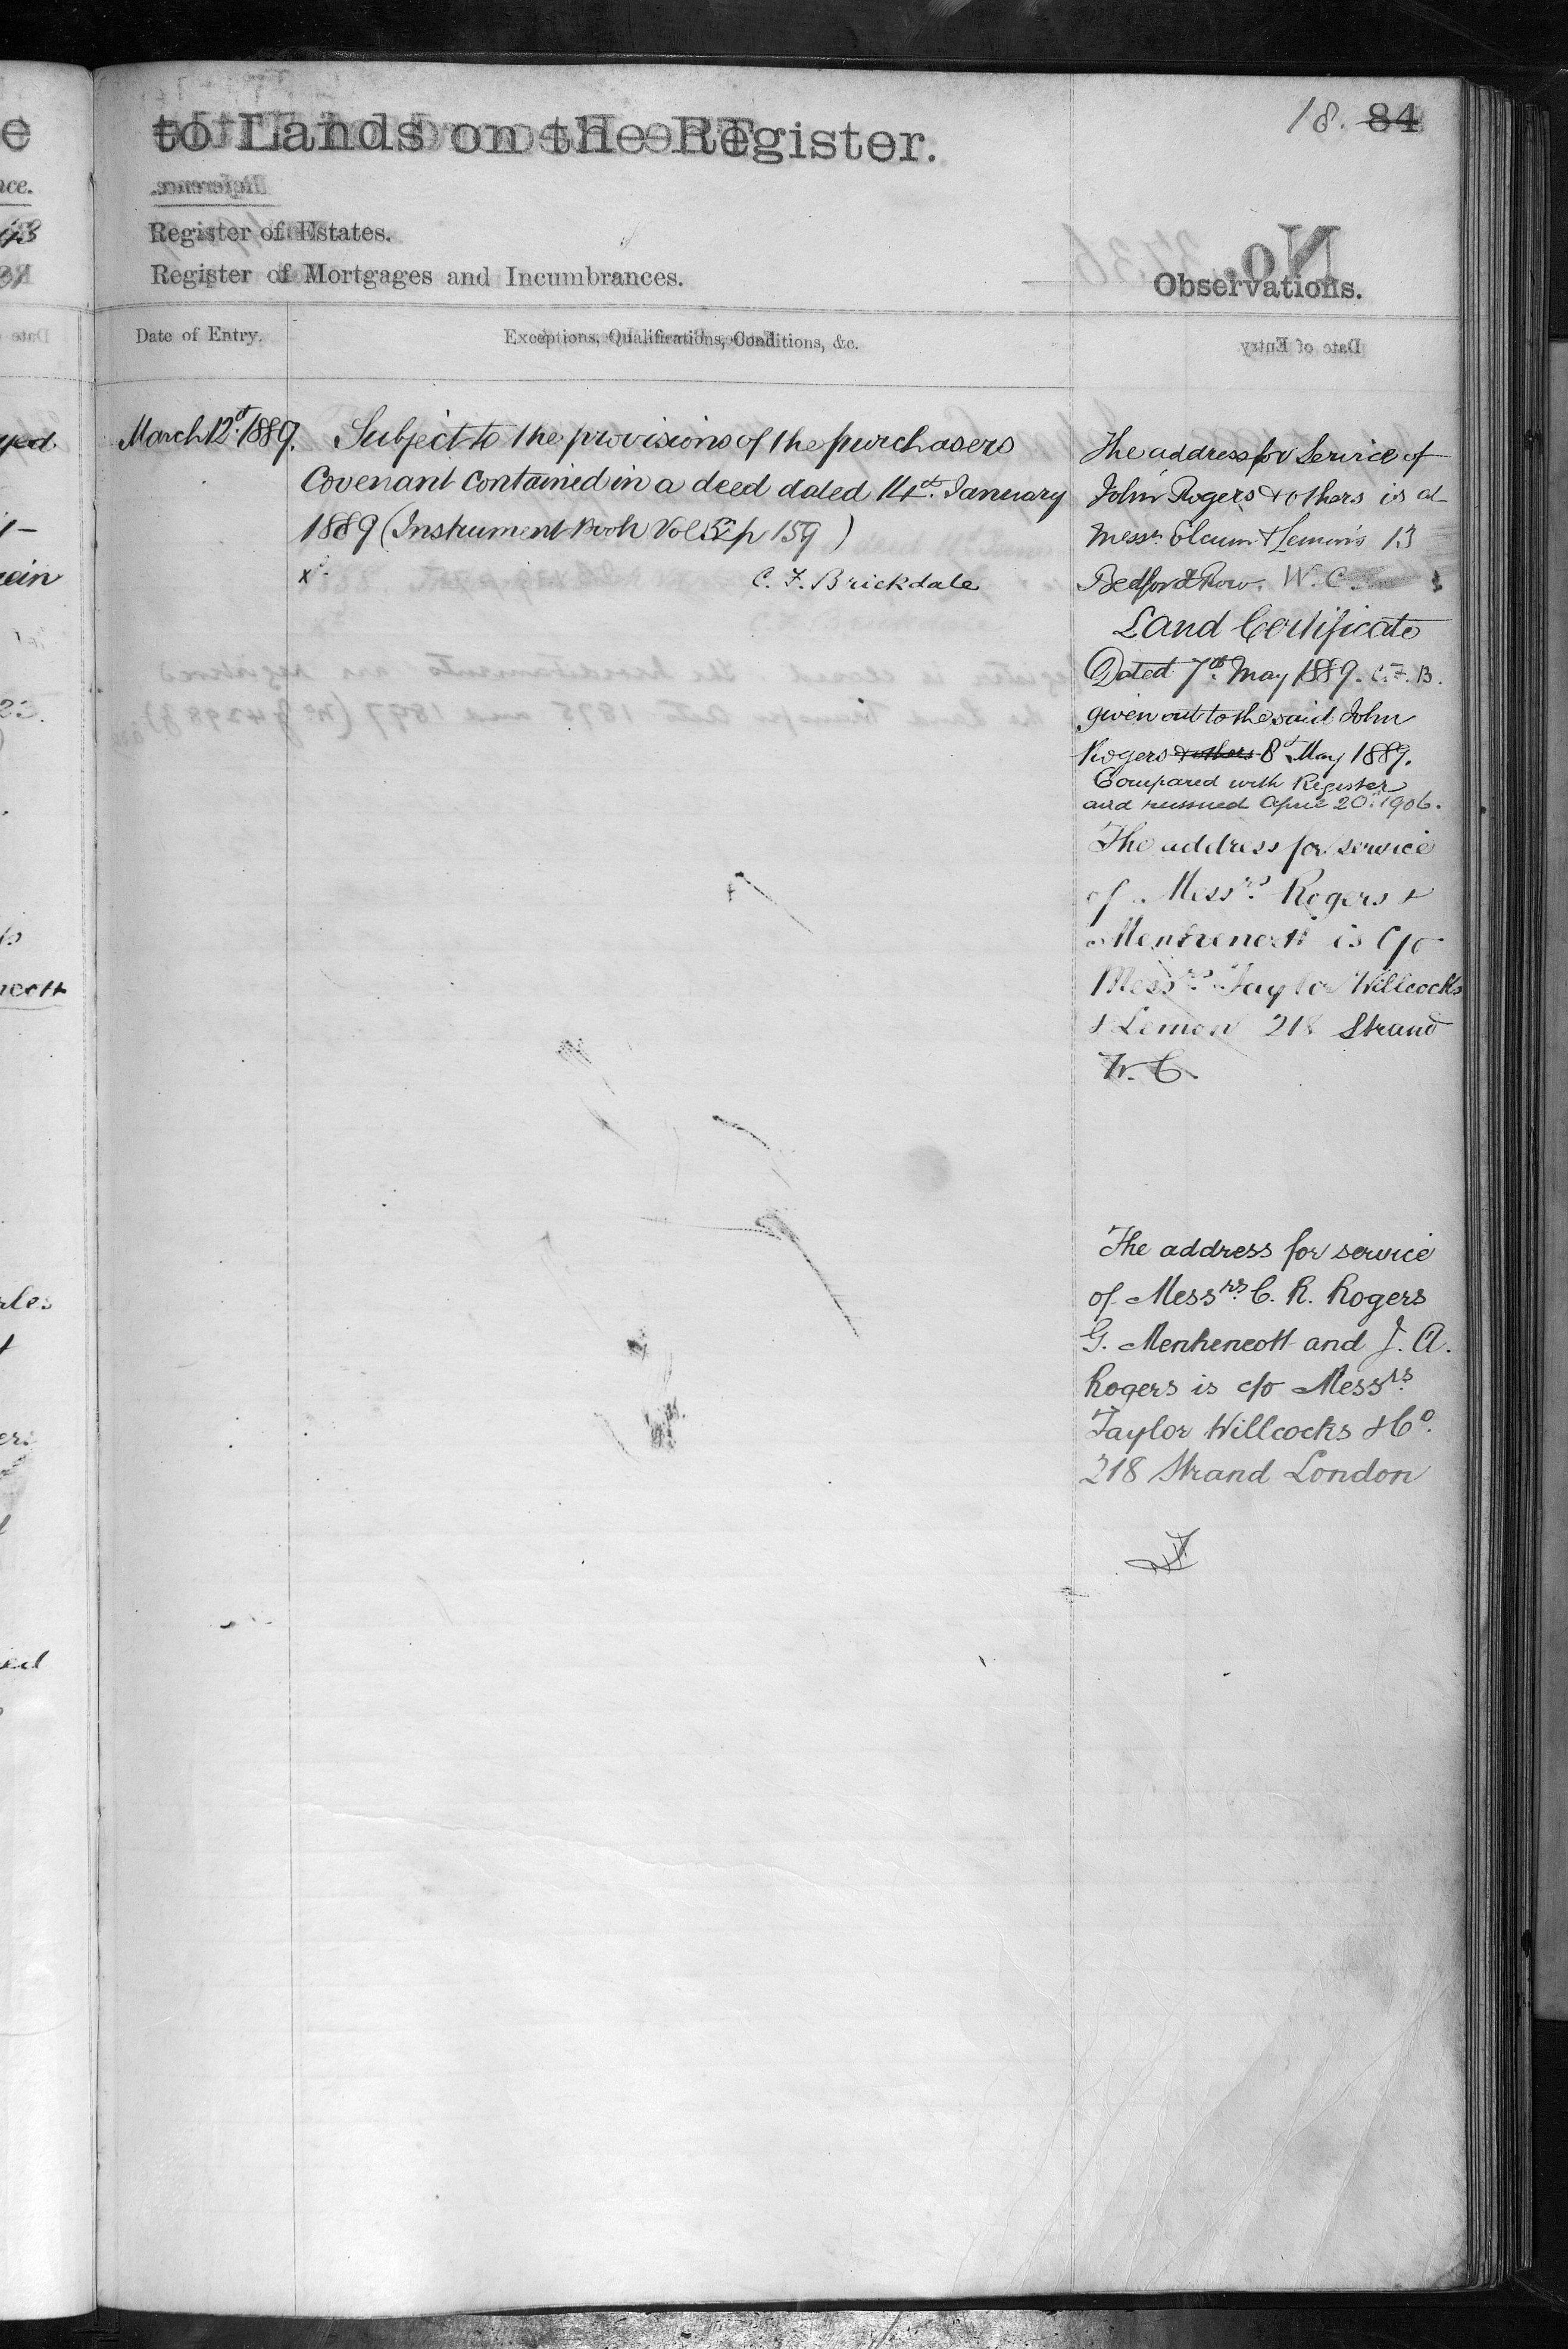 18. 84
to Lands on the Register.
Register of Estates.
Register of Mortgages and Incumbrances.
Observations.
Date of Entry.
Exceptions, Qualifications, Conditions, &c.
March 12th 1889.
Subject to the provisions of the purchasers
Covenant contained in a deed dated 14th January
1889 (Instrument Book Vol 52 p 159)
C. F. Brickdale
The address for Service of
John Rogers & others is at
Messrs Elcum & Lemon's 13
Bedford Row. W. C.
Land Certificate
Dated 7th May 1889. C. F. B.
given out to the said John
Rogers & others 8th May 1889.
Compared with Register
and reissued April 20th 1906.
The address for service
of Messrs Rogers &
Menheneott is c/o
Messrs Taylor Willcocks
& Lemon 218 Strand
W. C.
The address for service
of Messrs C. R. Rogers
G. Menheneott and J. A.
Rogers is c/o Messrs
Taylor Willcocks & Co.
218 Strand London